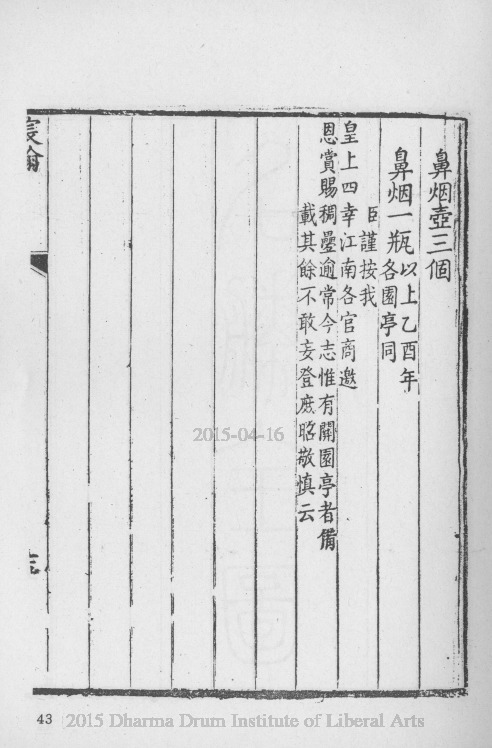 鼻烟壺三個
鼻烟一瓶以上乙酉年
各園亭同
臣謹按我
皇上四幸江南各官商邀
恩賞賜稠疊逾常今志惟有關園亭者備
載其餘不敢妄登庶昭敬慎云
宸翰
43
2015-04-16
2015 Dharma Drum Institute of Liberal Arts